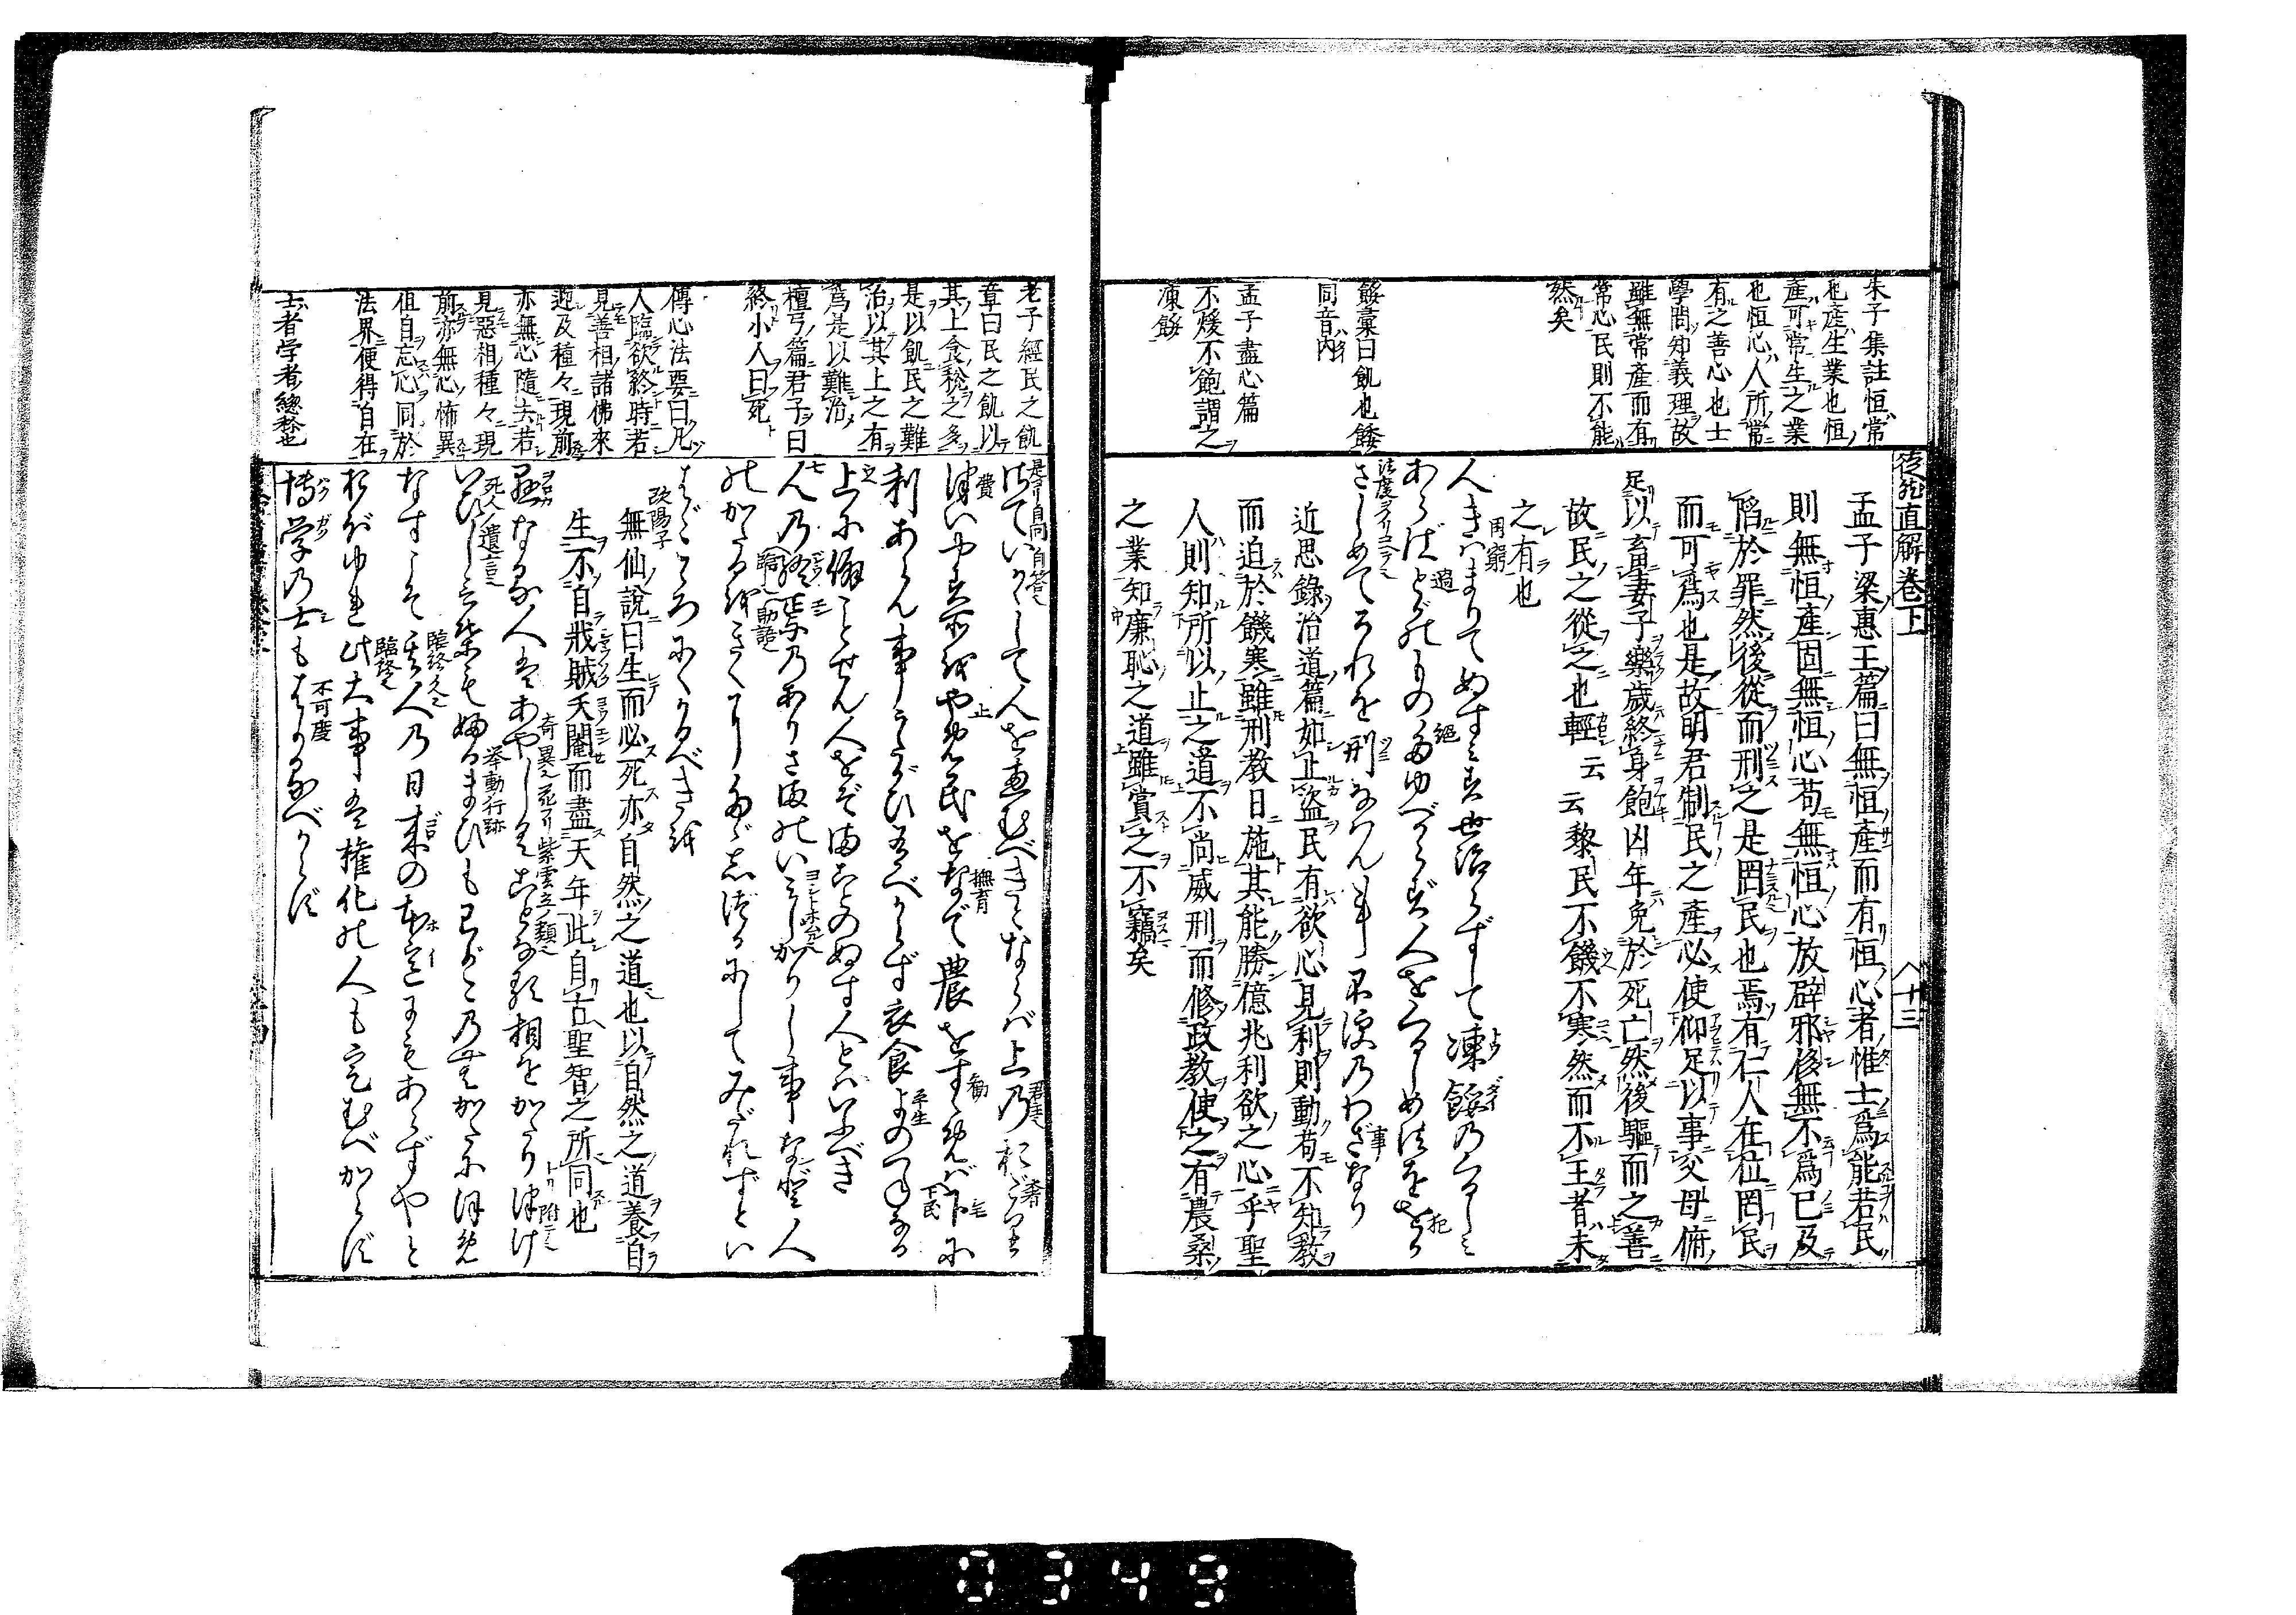 徒然直解巻下
八十三
朱子集註恒常
也産生業也恒
産可常生之業
也恒心人所常
有之善心也士
學問知義理故
雖無常産而有
常心民則不能
然矣
餒彙曰飢也餧
同音内
孟子盡心篇
不煖不飽謂之
凍餒
孟子梁惠王篇曰無恒産而有恒心者惟士爲能若民
則無恒産固無恒心苟無恒心放辟邪侈無不爲已及
陷於罪然後從而刑之是罔民也焉有仁人在位罔民
而可爲也是故明君制民之産必使仰足以事父母俯
足以畜妻子樂歳終身飽凶年免於死亡然後驅而之善
故民之從之也輕云云黎民不饑不寒然而不王者未
之有也
人きはまりてぬすみす世治らずして凍餒のくるしみ
あらばとがのもの絶ゆべからず人をくるしめ法をおか
さしめてそれを刑なはん事不便のわざなり
近思錄治道篇如止盜民有欲心見利則動苟不知教
而迫於饑寒雖刑教日施其能勝億兆利欲之心乎聖
人則知所以止之道不尚威刑而修政教使之有農桑
之業知廉恥之道雖賞之不竊矣
老子經民之飢
章曰民之飢以
其上食稅之多
是以飢民之難
治以其上之有
爲是以難治
檀弓篇君子曰
終小人曰死
傳心法要曰凡
人臨欲終時若
見善相諸佛來
迎及種々現前
亦無心隨去若
見惡相種々現
前亦無心怖異
但自忘心同於
法界便得自在
士者学者總称也
是ヨリ自問自答也
さていかゞして人を恵むべきとならば上の奢り
費いやす所をやめ民をなで農をすゝめば下に
利あらん事うたがひ有べからず衣食よのつねなる
上に僻ことせん人をぞまことのぬす人とはいふべき
人の終焉のありさまのいみじかりし事など人
のかたるをきくにたゞしづかにしてみだれずとい
はゞこゝろにくかるべきを
欧陽子
無仙說曰生而必死亦自然之道也以自然之道養自
生不自戕賊夭閼而盡天年此自古聖智之所同也
愚なる人はあやしくことなる相をかたりつけ
いひしことばもふるまひもをのれがこのむかたにほめ
なすこそその人の日来の本意にもあらずやと
おぼゆれ此大事は権化の人も定むべからず
博学の士もはかるべからず